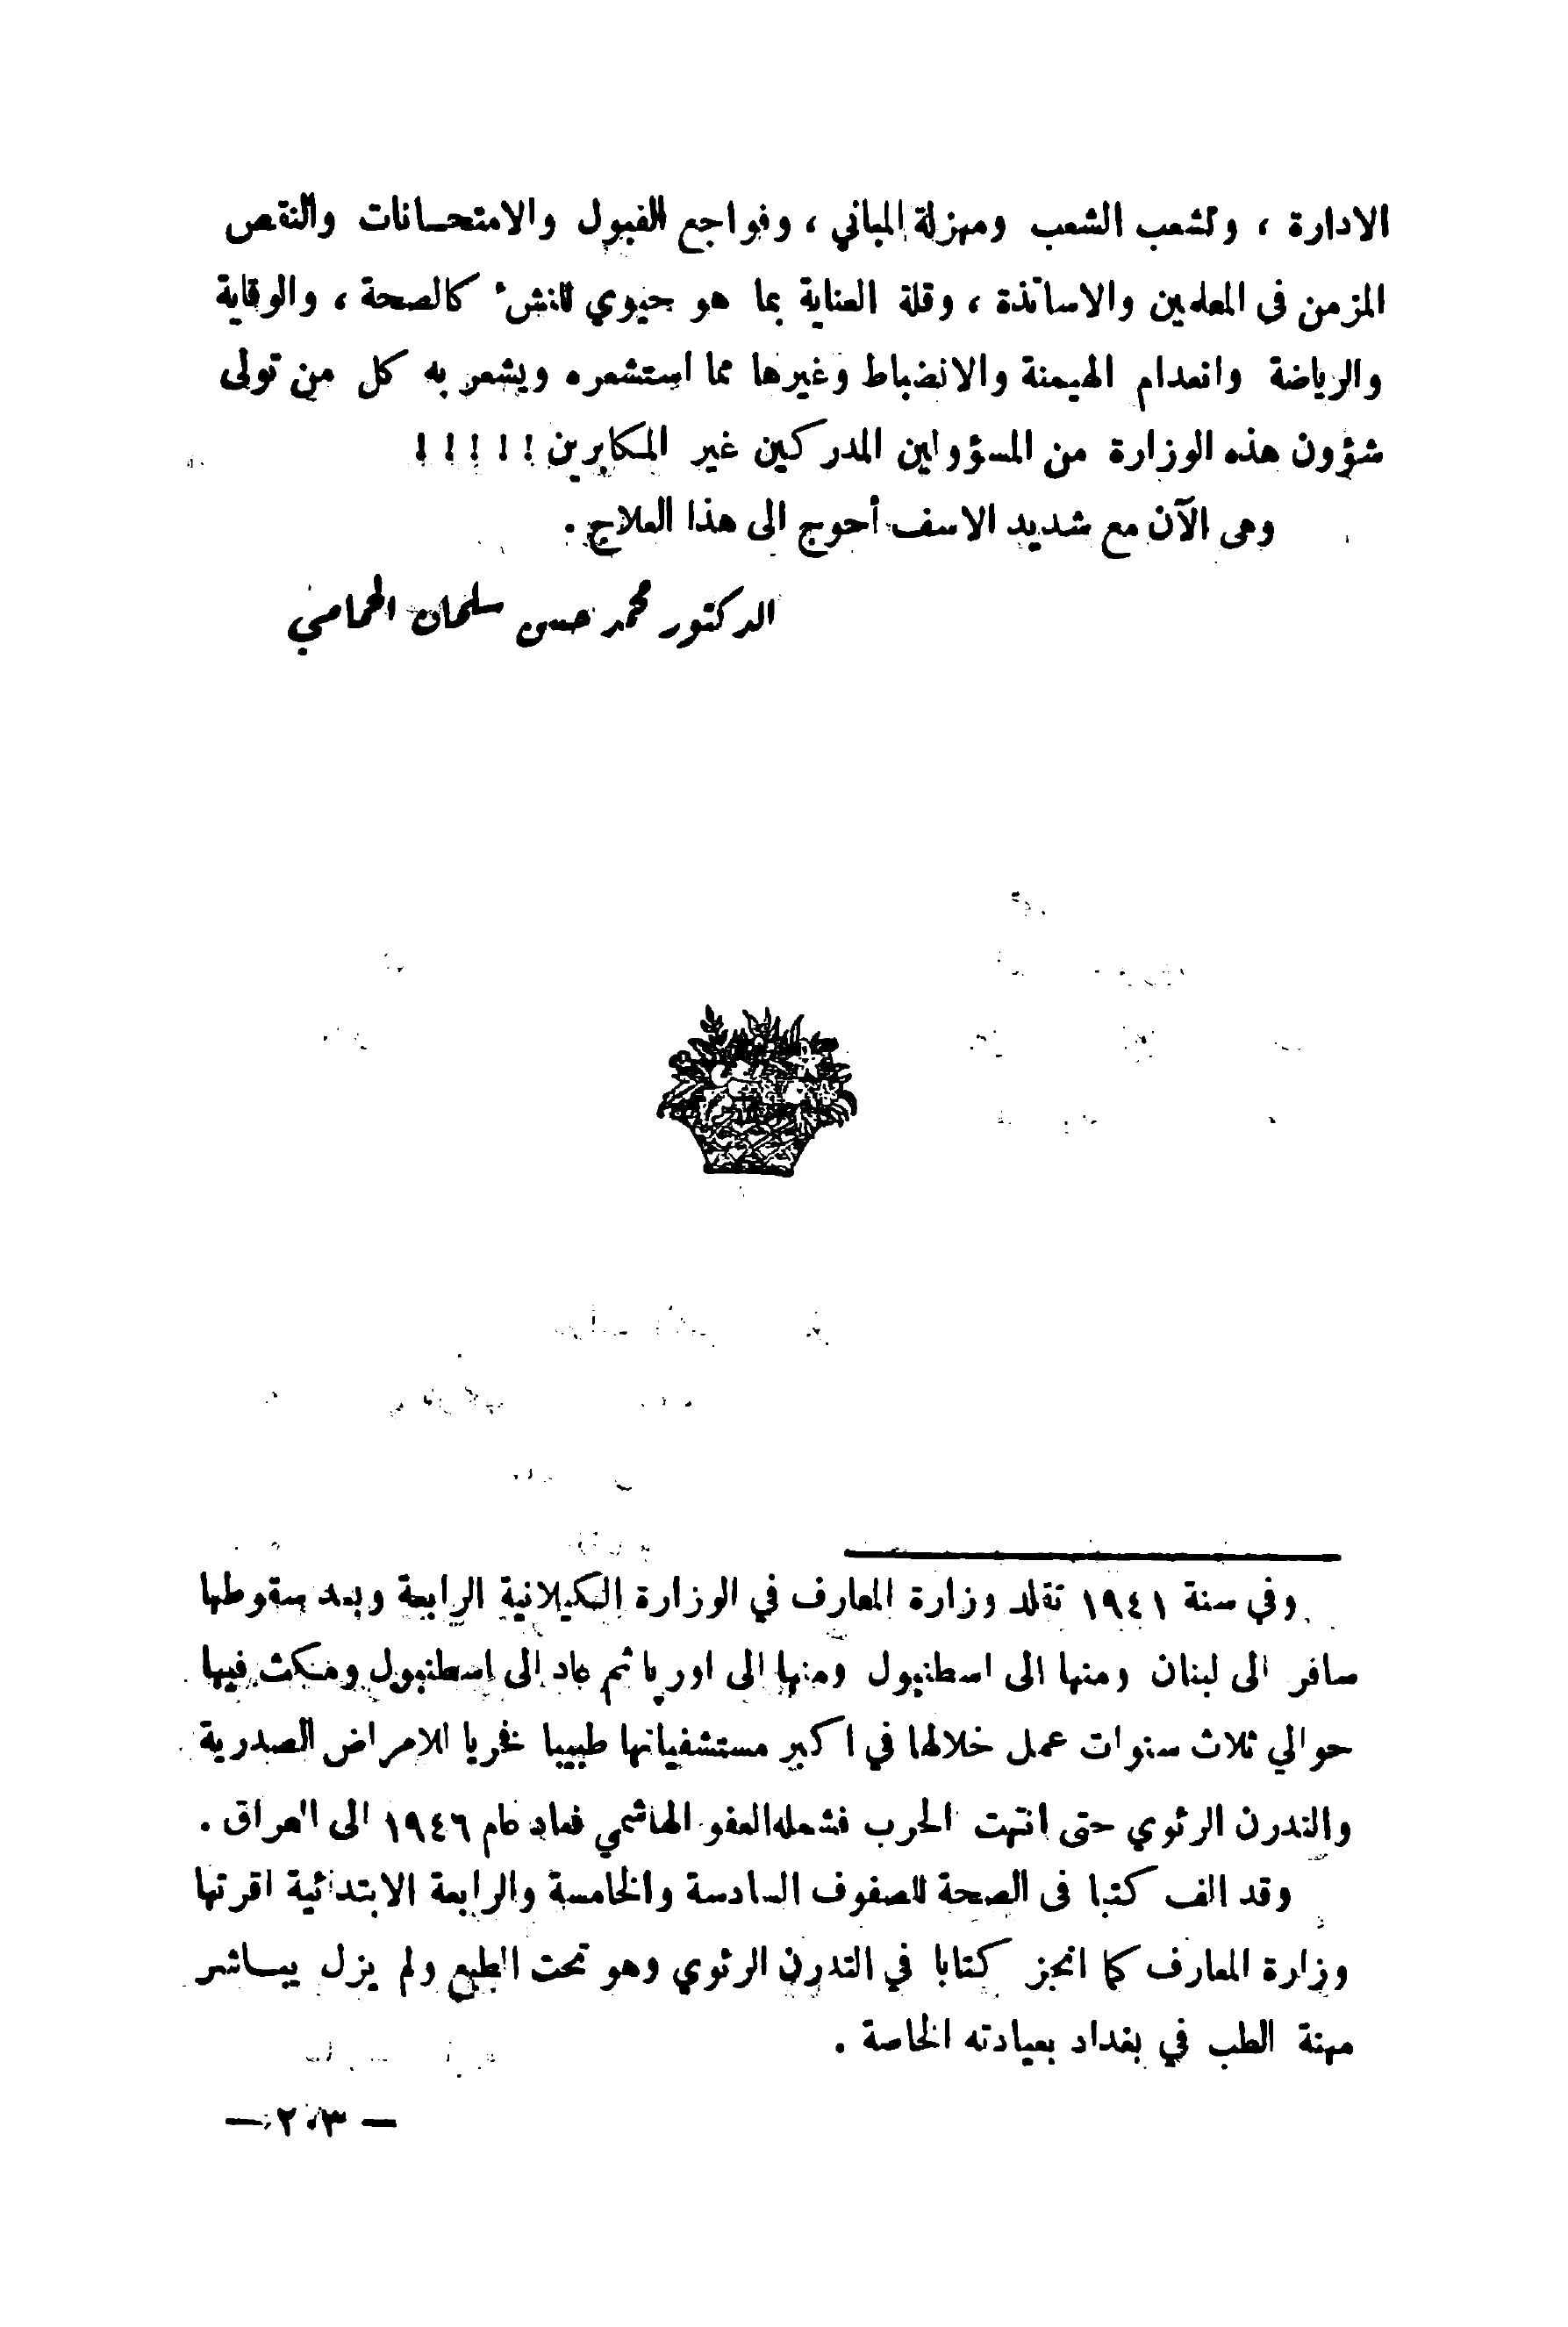 الادارة ، وتشعب الشعب ومهزلة المباني ، وفواجع القبول والامتحانات والنقص
المزمن في المعلمين والاساتذة ، وقلة العناية بما هو حيوي للنشء كالصحة ، والوقاية
والرياضة وانعدام الهيمنة والانضباط وغيرها مما استشعره ويشعر به كل من تولى
شؤون هذه الوزارة من المسؤولين المدركين غير المكابرين ! ! ! ! !
وهى الآن مع شديد الاسف أحوج الى هذا العلاج .
الدكتور محمد حسن سلمان المحامي
وفي سنة ١٩٤١ تقلد وزارة المعارف في الوزارة الكيلانية الرابعة وبعد سقوطها
سافر الى لبنان ومنها الى اسطنبول ومنها الى اوربا ثم عاد الى اسطنبول ومكث فيها
حوالي ثلاث سنوات عمل خلالها في اكبر مستشفياتها طبيبا فخريا للامراض الصدرية
والتدرن الرئوي حتى انتهت الحرب فشمله العفو الهاشمي فعاد عام ١٩٤٦ الى العراق .
وقد الف كتبا فى الصحة للصفوف السادسة والخامسة والرابعة الابتدائية اقرتها
وزارة المعارف كما انجز كتابا في التدرن الرئوي وهو تحت الطبع ولم يزل يباشر
مهنة الطب في بغداد بعيادته الخاصة .
— ٢٠٣ —